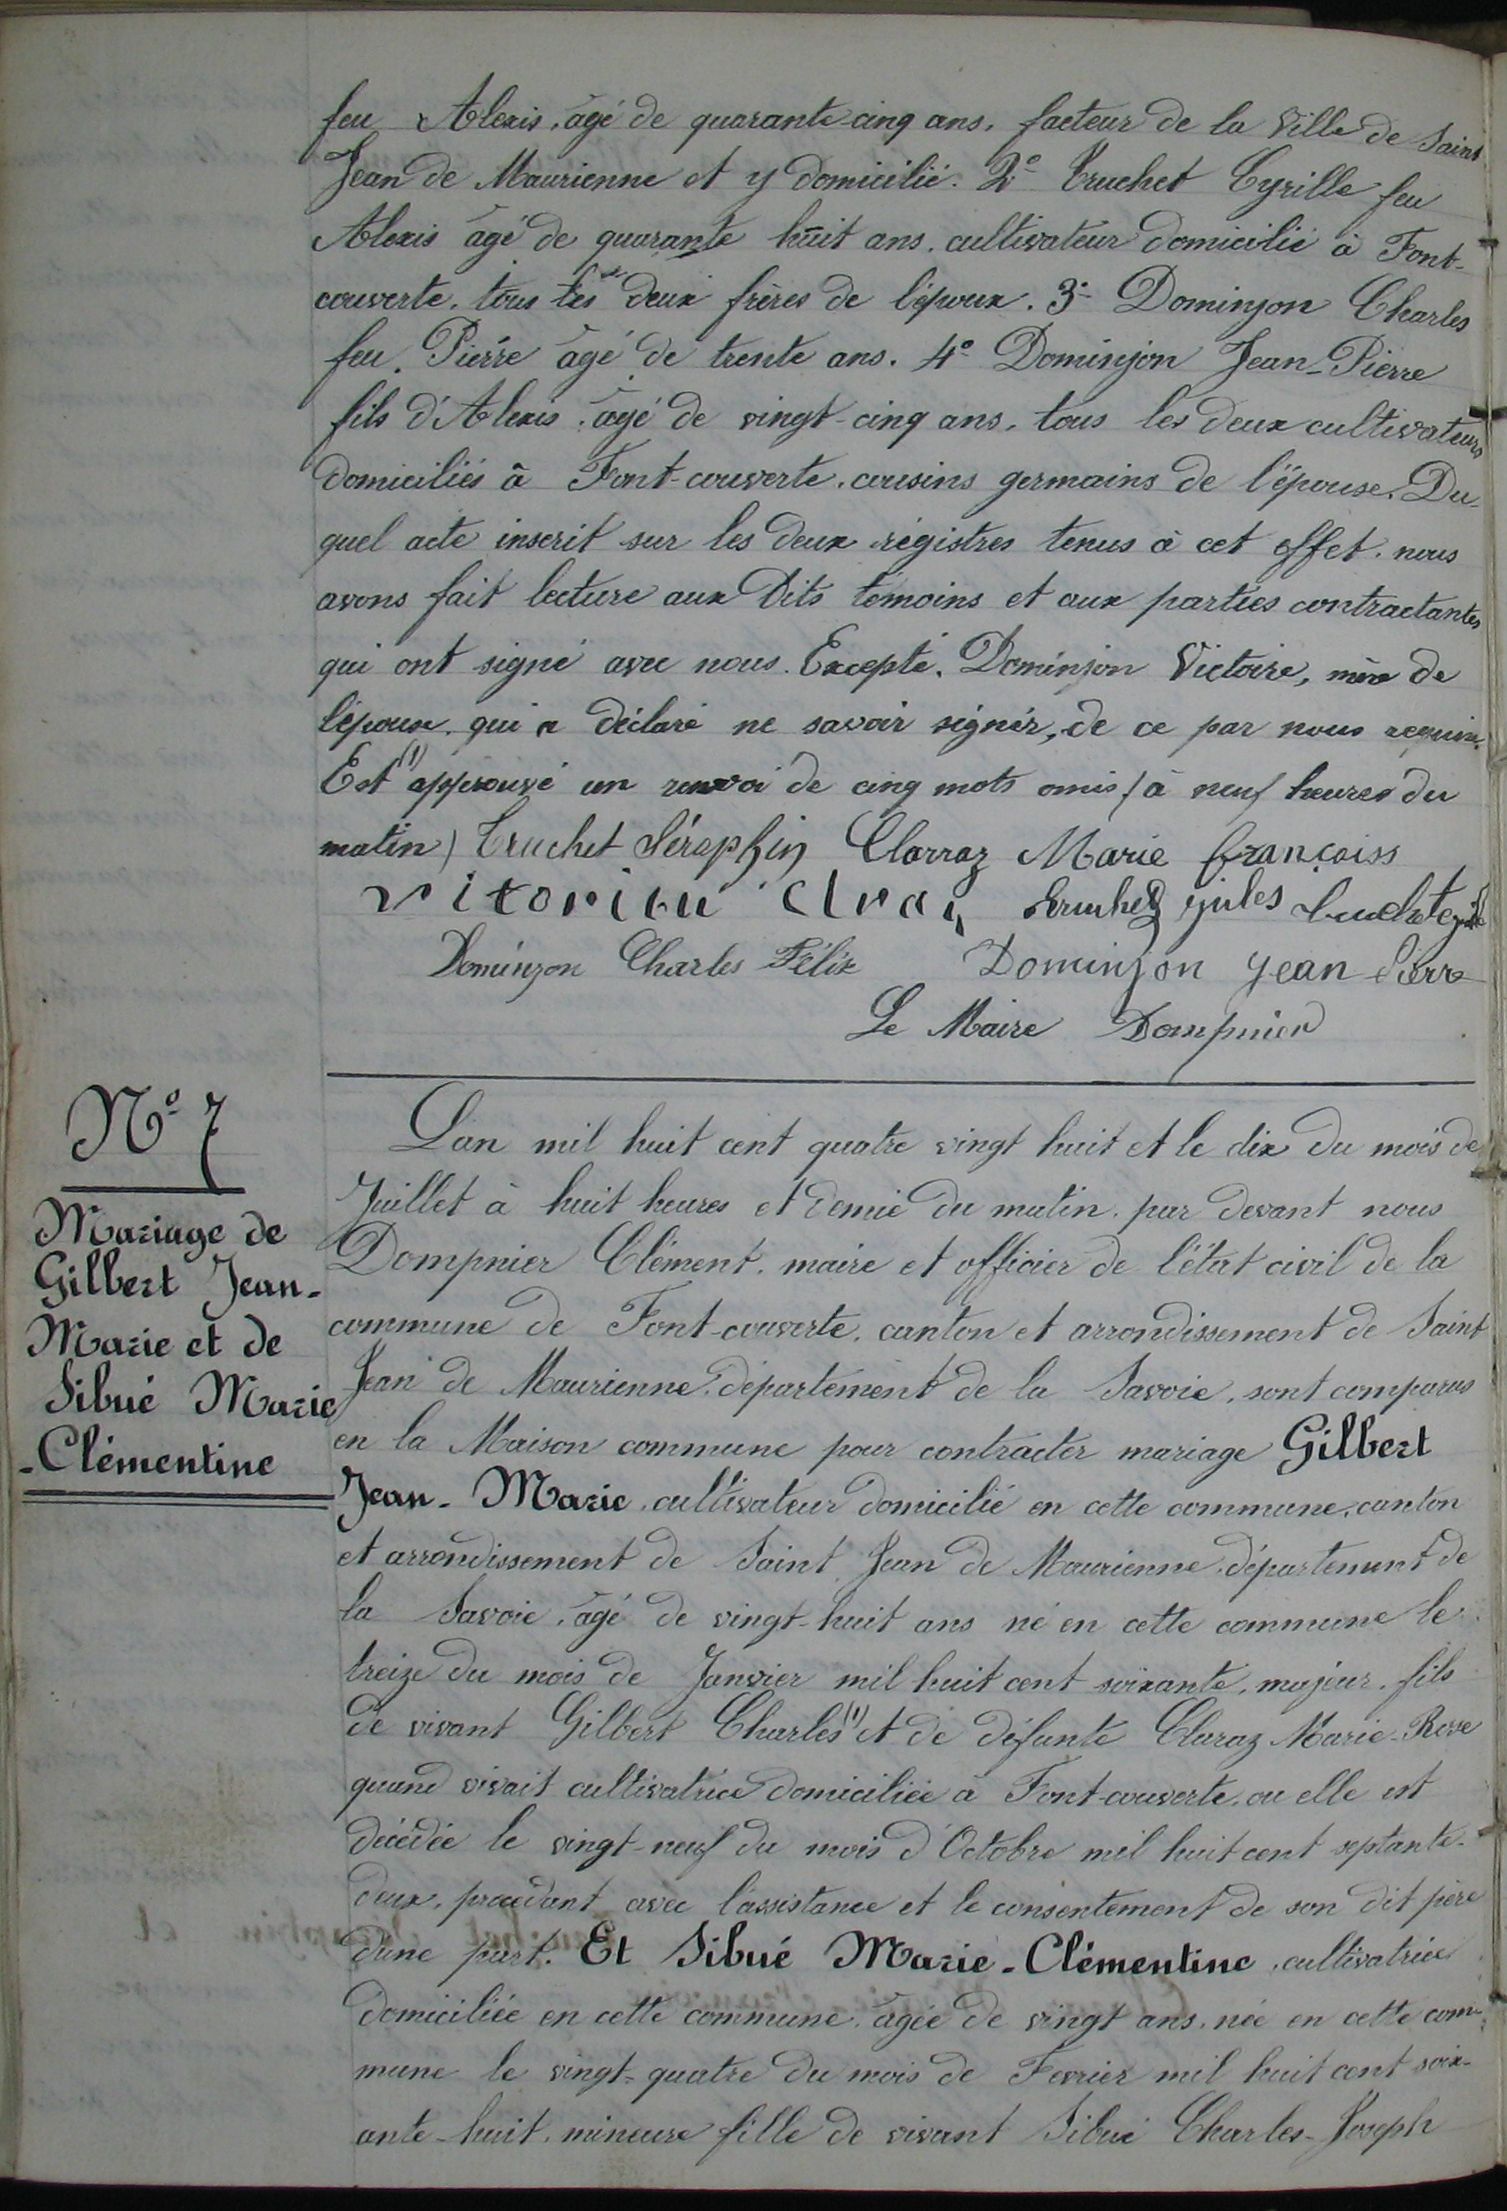 feu Alexis, âgé de quarante-cinq ans, facteur de la ville de Saint
Jean de Maurienne et y domicilié. 2° Truchet Cyrille feu
Alexis âgé de quarante huit ans, cultivateur domicilié à Font-
couverte, tous les deux frères de l'époux. 3° Dominjon Charles
feu Pierre âgé de trente ans. 4° Dominjon Jean-Pierre
fils d'Alexis, âgé de vingt-cinq ans, tous les deux cultivateurs
domiciliés à Font-couverte, cousins germains de l'épouse. Du
quel acte inscrit sur les deux régistres tenus à cet effet, nous
avons fait lecture aux dits témoins et aux parties contractantes
qui ont signé avec nous. Excepté, Dominjon Victoire, mère de
l'épouse, qui a déclaré ne savoir signér, de ce par nous requise.
Est (1) approuvé un renvoi de cinq mots omis / à neuf heures du
matin) Truchet Séraphin Clarraz Marie françoiss
Truchet jules
Dominjon Charles Félix Dominjon jean Pierre
Le Maire Dompnier
N° 7
Mariage de
Gilbert Jean-
Marie et de
Sibué Marie
-Clémentine
L'an mil huit cent quatre vingt huit et le dix du mois de
Juillet à huit heures et demie du matin, par devant nous
Dompnier Clément, maire et officier de l'état civil de la
commune de Font-couverte, canton et arrondissement de Saint
Jean de Maurienne, département de la Savoie, sont comparus
en la Maison commune pour contracter mariage Gilbert
Jean-Marie, cultivateur domicilié en cette commune, canton
et arrondissement de Saint Jean de Maurienne, département de
la Savoie, âgé de vingt-huit ans né en cette commune le
treize du mois de Janvier mil huit cent soixante, majeur, fils
de vivant Gilbert Charles (1) et de défunte Claraz Marie-Rose
quand vivait cultivatrice domiciliée à Font-couverte, ou elle est
décédée le vingt-neuf du mois d'Octobre mil huit cent septante-
deux, procédant avec l'assistance et le consentement de son dit père
d'une part. Et Sibué Marie-Clémentine, cultivatrice
domiciliée en cette commune, âgée de vingt ans, née en cette com-
mune le vingt-quatre du mois de Fevrier mil huit cent soix-
ante-huit, mineure fille de vivant Sibué Charles-Joseph